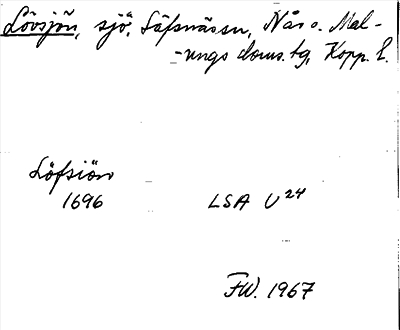 Lövsjön, sjö, Säfsnässn, Nås o. Mal-
-ungs doms. tg, Kopp. l.
Löfsiön
1696 LSA U24
FW. 1967